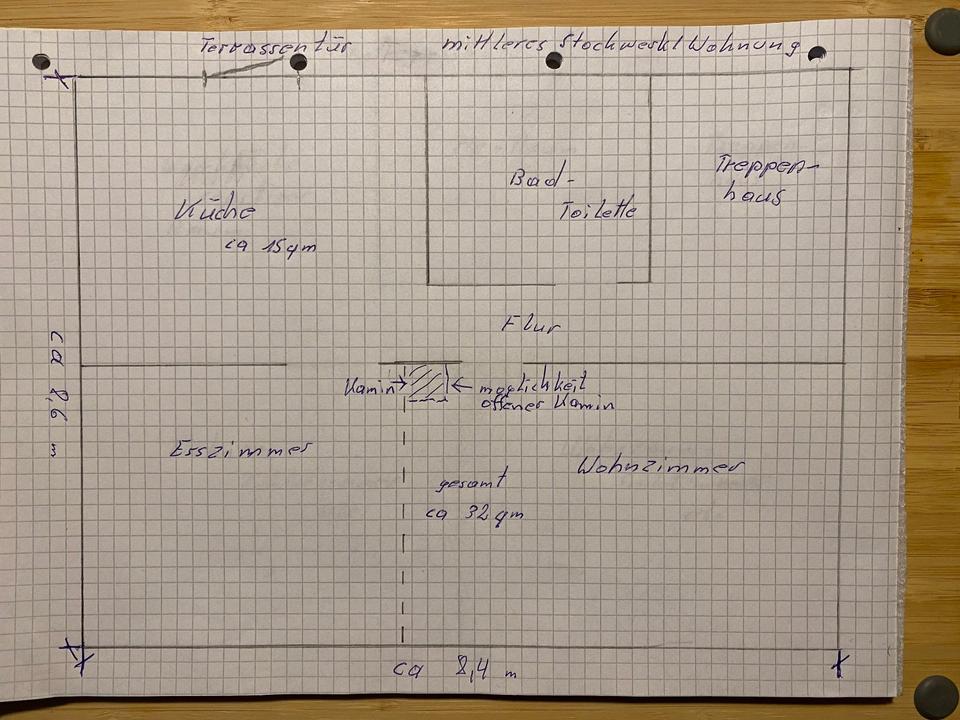 Terrassentür
mittleres Stockwerk/Wohnung
Bad-
Toilette
Treppen-
haus
Küche
ca 15qm
Flur
ca 8,6 m
Kamin
möglichkeit
offener Kamin
Esszimmer
Wohnzimmer
gesamt
ca 32 qm
ca 8,4 m